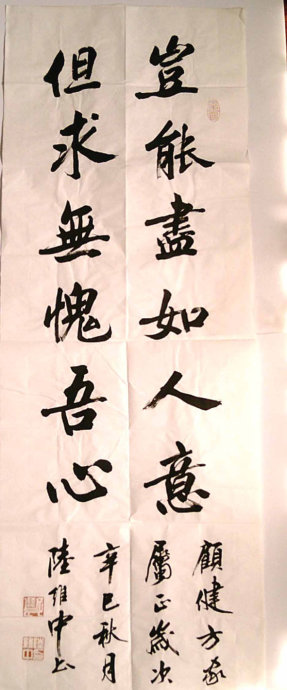 豈能盡如人意
但求無愧吾心
顧健方家
屬正歲次
辛巳秋月
陸維中书